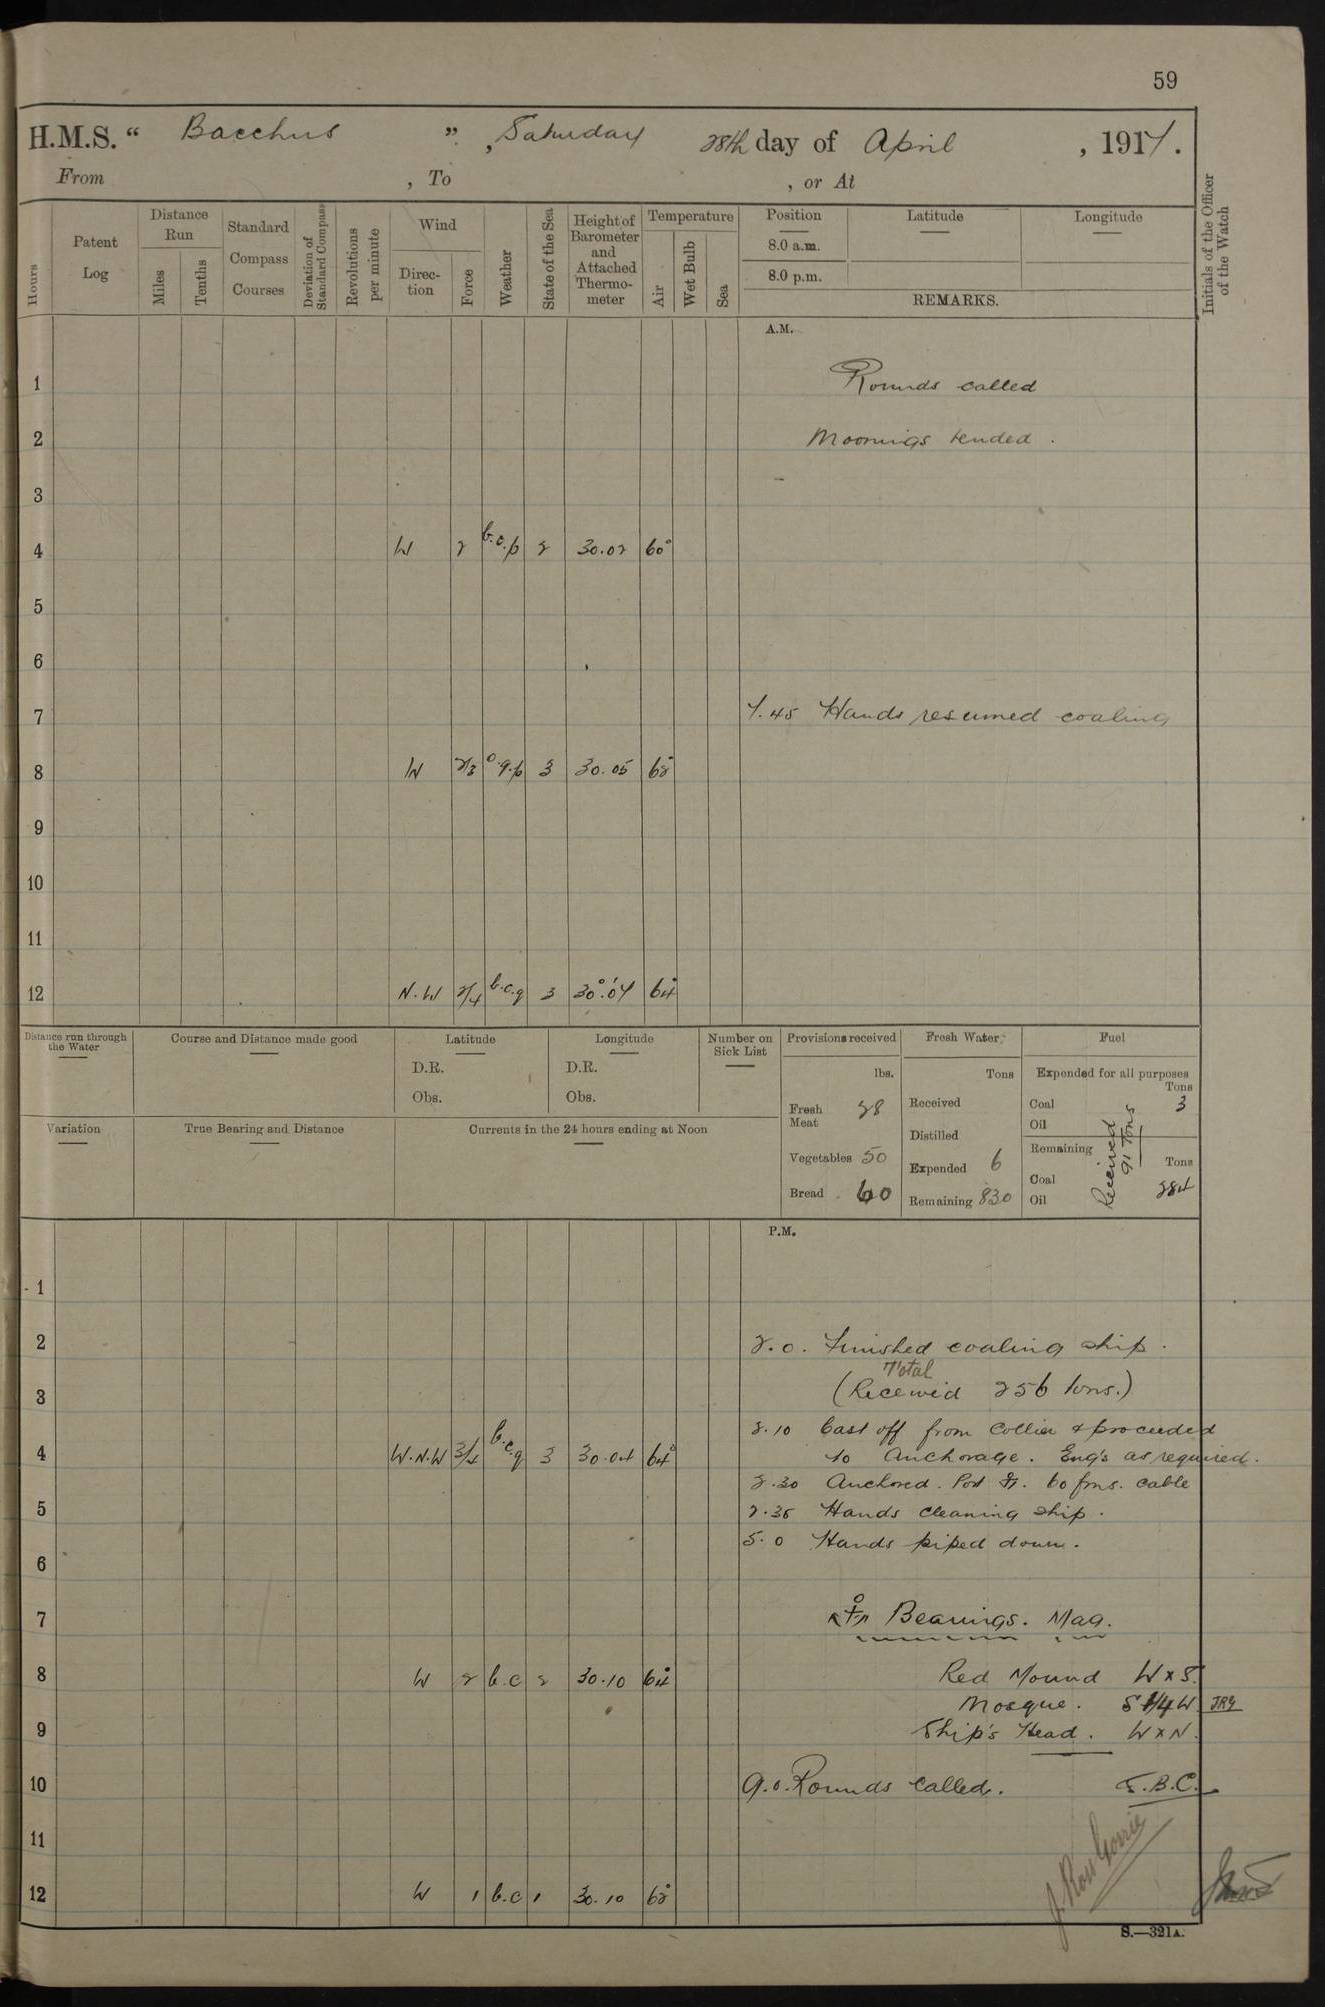 59
H.M.S. “ Bacchus ” , Saturday 28th day of April , 1917.
From , To , or At
Hours
Patent Log
Distance Run
Miles
Tenths
Standard Compass Courses
Deviation of Standard Compass
Revolutions per minute
Wind
Direction
Force
Weather
State of the Sea
Height of Barometer and Attached Thermometer
Temperature
Air
Wet Bulb
Sea
Position
8.0 a.m.
8.0 p.m.
Latitude
Longitude
REMARKS.
Initials of the Officer of the Watch
A.M.
1 Rounds called
2 Moorings tended .
3
4 W 2 b.c.p 2 30.02 60°
5
6
7 7.45 Hands resumed coaling
8 W 2/3 o.q.p 3 30.05 62°
9
10
11
12 N.W 2/4 b.c.q 3 30.07 64°
Distance run through the Water
Course and Distance made good
Latitude
D.R.
Obs.
Longitude
D.R.
Obs.
Number on Sick List
Provisions received
lbs.
Fresh Meat 28
Vegetables 50
Bread 60
Fresh Water
Tons
Received
Distilled
Expended 6
Remaining 830
Fuel
Expended for all purposes
Tons
Coal 3
Oil
Remaining
Tons
Coal 284
Oil
Received 91 Tons
Variation
True Bearing and Distance
Currents in the 24 hours ending at Noon
P.M.
1
2 2.0. Finished coaling ship.
Total
3 (Received 256 tons.)
2.10 Cast off from Collier & proceeded
4 W.N.W 3/4 b.c.q 3 30.04 64° to Anchorage. Eng's as required.
2.30 Anchored. Port ⚓. 60 fms. cable
5 2.35 Hands cleaning ship.
5.0 Hands piped down.
6
7 ⚓ Bearings. Mag.
8 W 2 b.c 2 30.10 64° Red Mound W x S.
Mosque. S 1/4 W. JRG
9 Ship's Head. W x N.
10 9.0. Rounds called. F.B.C.
11
12 W 1 b.c 1 30.10 62°
J. Ross Gorrie
S.—321A.